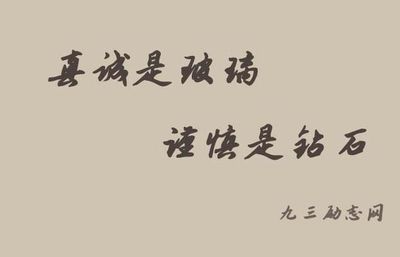 真诚是玻璃
谨慎是钻石
九三励志网